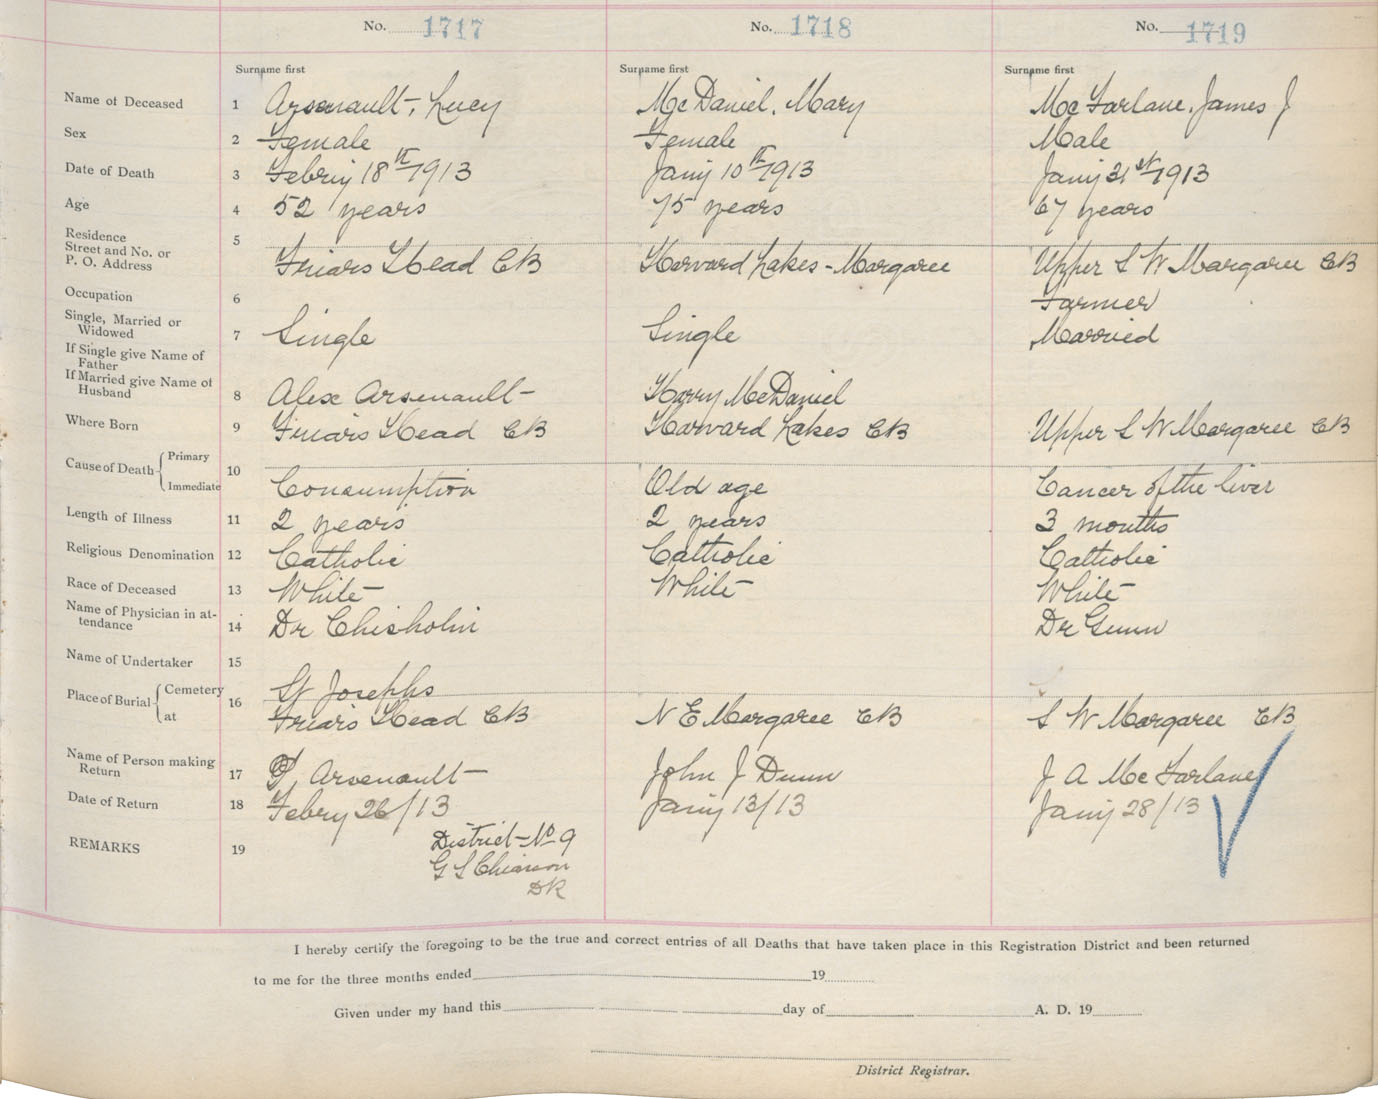 No. 1717 No. 1718 No. 1719
Surname first Surname first Surname first
Name of Deceased 1 Arsenault, Lucy Mc Daniel, Mary Mc Farlane, James J
Sex 2 Female Female Male
Date of Death 3 Febry 18th 1913 Jany 10th 1913 Jany 21st 1913
Age 4 52 years 75 years 67 years
Residence 5
Street and No. or
P. O. Address Friars Head CB Harvard Lakes - Margaree Upper S W Margaree CB
Occupation 6 Farmer
Single, Married or
Widowed 7 Single Single Married
If Single give Name of
Father
If Married give Name of
Husband 8 Alex Arsenault Harry McDaniel
Where Born 9 Friars Head CB Harvard Lakes CB Upper S W Margaree CB
Cause of Death { Primary 10
Immediate Consumption Old age Cancer of the liver
Length of Illness 11 2 years 2 years 3 months
Religious Denomination 12 Catholic Catholic Catholic
Race of Deceased 13 White White White
Name of Physician in at-
tendance 14 Dr Chisholm Dr Gunn
Name of Undertaker 15
Place of Burial { Cemetery 16 St Josephs
at Friars Head CB N E Margaree CB S W Margaree CB
Name of Person making
Return 17 Arsenault John J Dunn J A Mc Farlane
Date of Return 18 Febry 26/13 Jany 13/13 Jany 28/13
REMARKS 19 District No 9
G S Chiasson
DR
I hereby certify the foregoing to be the true and correct entries of all Deaths that have taken place in this Registration District and been returned
to me for the three months ended 19
Given under my hand this day of A. D. 19
District Registrar.